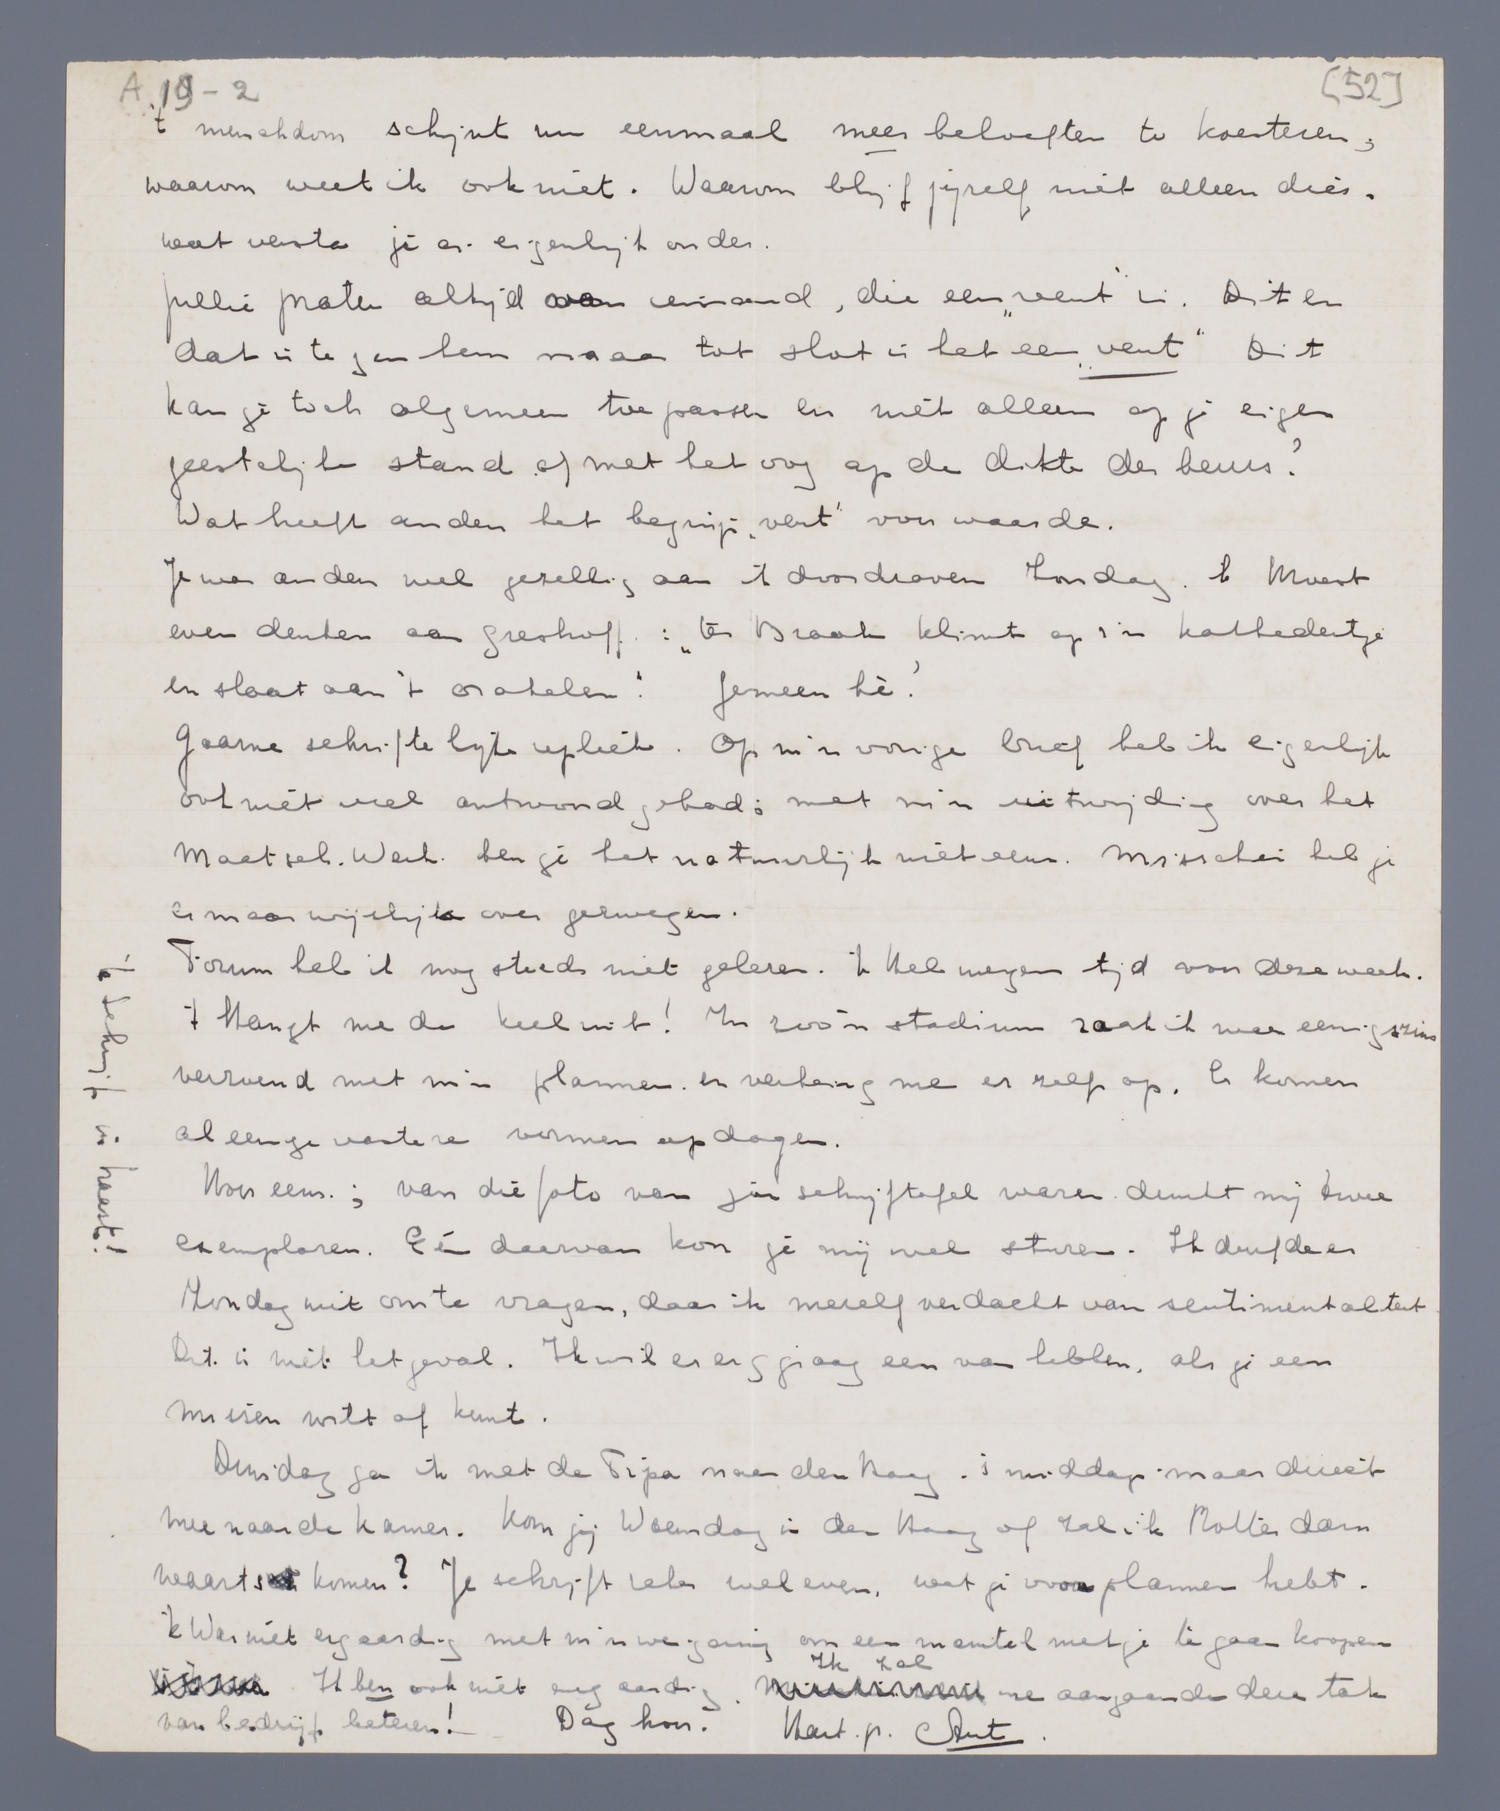 A 19-2 [52]
't menschdom schijnt nu eenmaal meer behoeften te koesteren;
waarom weet ik ook niet. Waarom blijf jijzelf niet alleen drès.
wat versta je er eigenlijk onder.
Jullie praten altijd van iemand, die een „vent" is. Dit en
dat is tegen hem maar tot slot is het een „vent" Dit
kan je toch algemeen toepassen en niet alleen op je eigen
geestelijke stand of met het oog op de dikte der beurs?
Wat heeft anders het begrip „vent" voor waarde.
Je was anders wel gezellig aan 't doordraven Zondag. 'k Moest
even denken aan Greshoff: „ter Braak klimt op z'n kathedertje
en slaat aan 't orakelen". Gemeen hè?
Gaarne schriftelijke repliek. Op m'n vorige brief heb ik eigenlijk
ook niet veel antwoord gehad; met m'n uitwijding over het
Maatsch. Werk. ben je het natuurlijk niet eens. Misschien heb je
er maar wijselijk over gezwegen.
Forum heb ik nog steeds niet gelezen. 'k Heb
tijd voor deze week.
't Hangt me de keel uit! In zoo'n stadium raak ik weer eenigszins
verzoend met m'n plannen en verheug me er zelf op. Er komen
al eenige vastere vormen opdagen.
Hoor eens; van die foto van je schrijftafel waren dunkt mij twee
exemplaren. Eén daarvan kon je mij wel sturen. Ik durfde er
Zondag niet om te vragen, daar ik mezelf verdacht van sentimentaliteit
Dit is niet het geval. Ik wil er erg graag een van hebben, als je een
missen wilt of kunt.
Dinsdag ga ik met de Tripa naar den Haag. 's middags maar direct
mee naar de kamer. Kom jij Woensdag in den Haag of zal ik Rotterdam
waarts komen? Je schrijft zeker wel even, wat je voor plannen hebt.
'k Was niet erg aardig met m'n weigering om een mantel met je te gaan koopen
Ik ben ook niet erg aardig. Ik zal me aangaande deze tak
van bedrijf beteren! Dag hoor. Hart. gr. Ant.
'k Schrijf in haast!